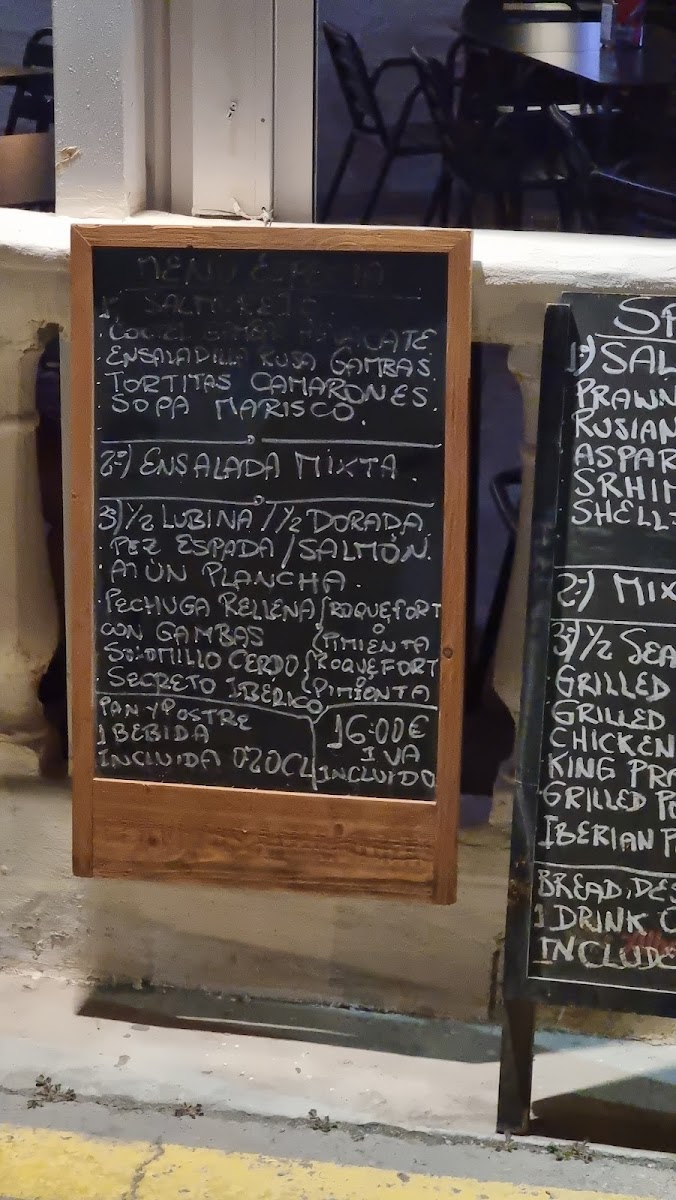 MENÚ
1º) SALMOREJO.
COCTEL GAMBAS AGUACATE
ENSALADILLA RUSA GAMBAS.
TORTITAS CAMARONES.
SOPA MARISCO.
2º) ENSALADA MIXTA.
3º) 1/2 LUBINA / 1/2 DORADA
PEZ ESPADA / SALMÓN.
ATÚN PLANCHA.
PECHUGA RELLENA ROQUEFORT
CON GAMBAS O PIMIENTA
SOLOMILLO CERDO ROQUEFORT
SECRETO IBÉRICO O PIMIENTA
PAN Y POSTRE
1 BEBIDA
INCLUIDA 0'20CL
16:00€
IVA
INCLUIDO
SP
1º) SAL
PRAWN
RUSIAN
ASPAR
SRHIM
SHELLS
2º) MIX
3º) 1/2 SEA
GRILLED
GRILLED
CHICKEN
KING PRA
GRILLED PO
IBERIAN P
BREAD, DES
1 DRINK O
INCLUDE